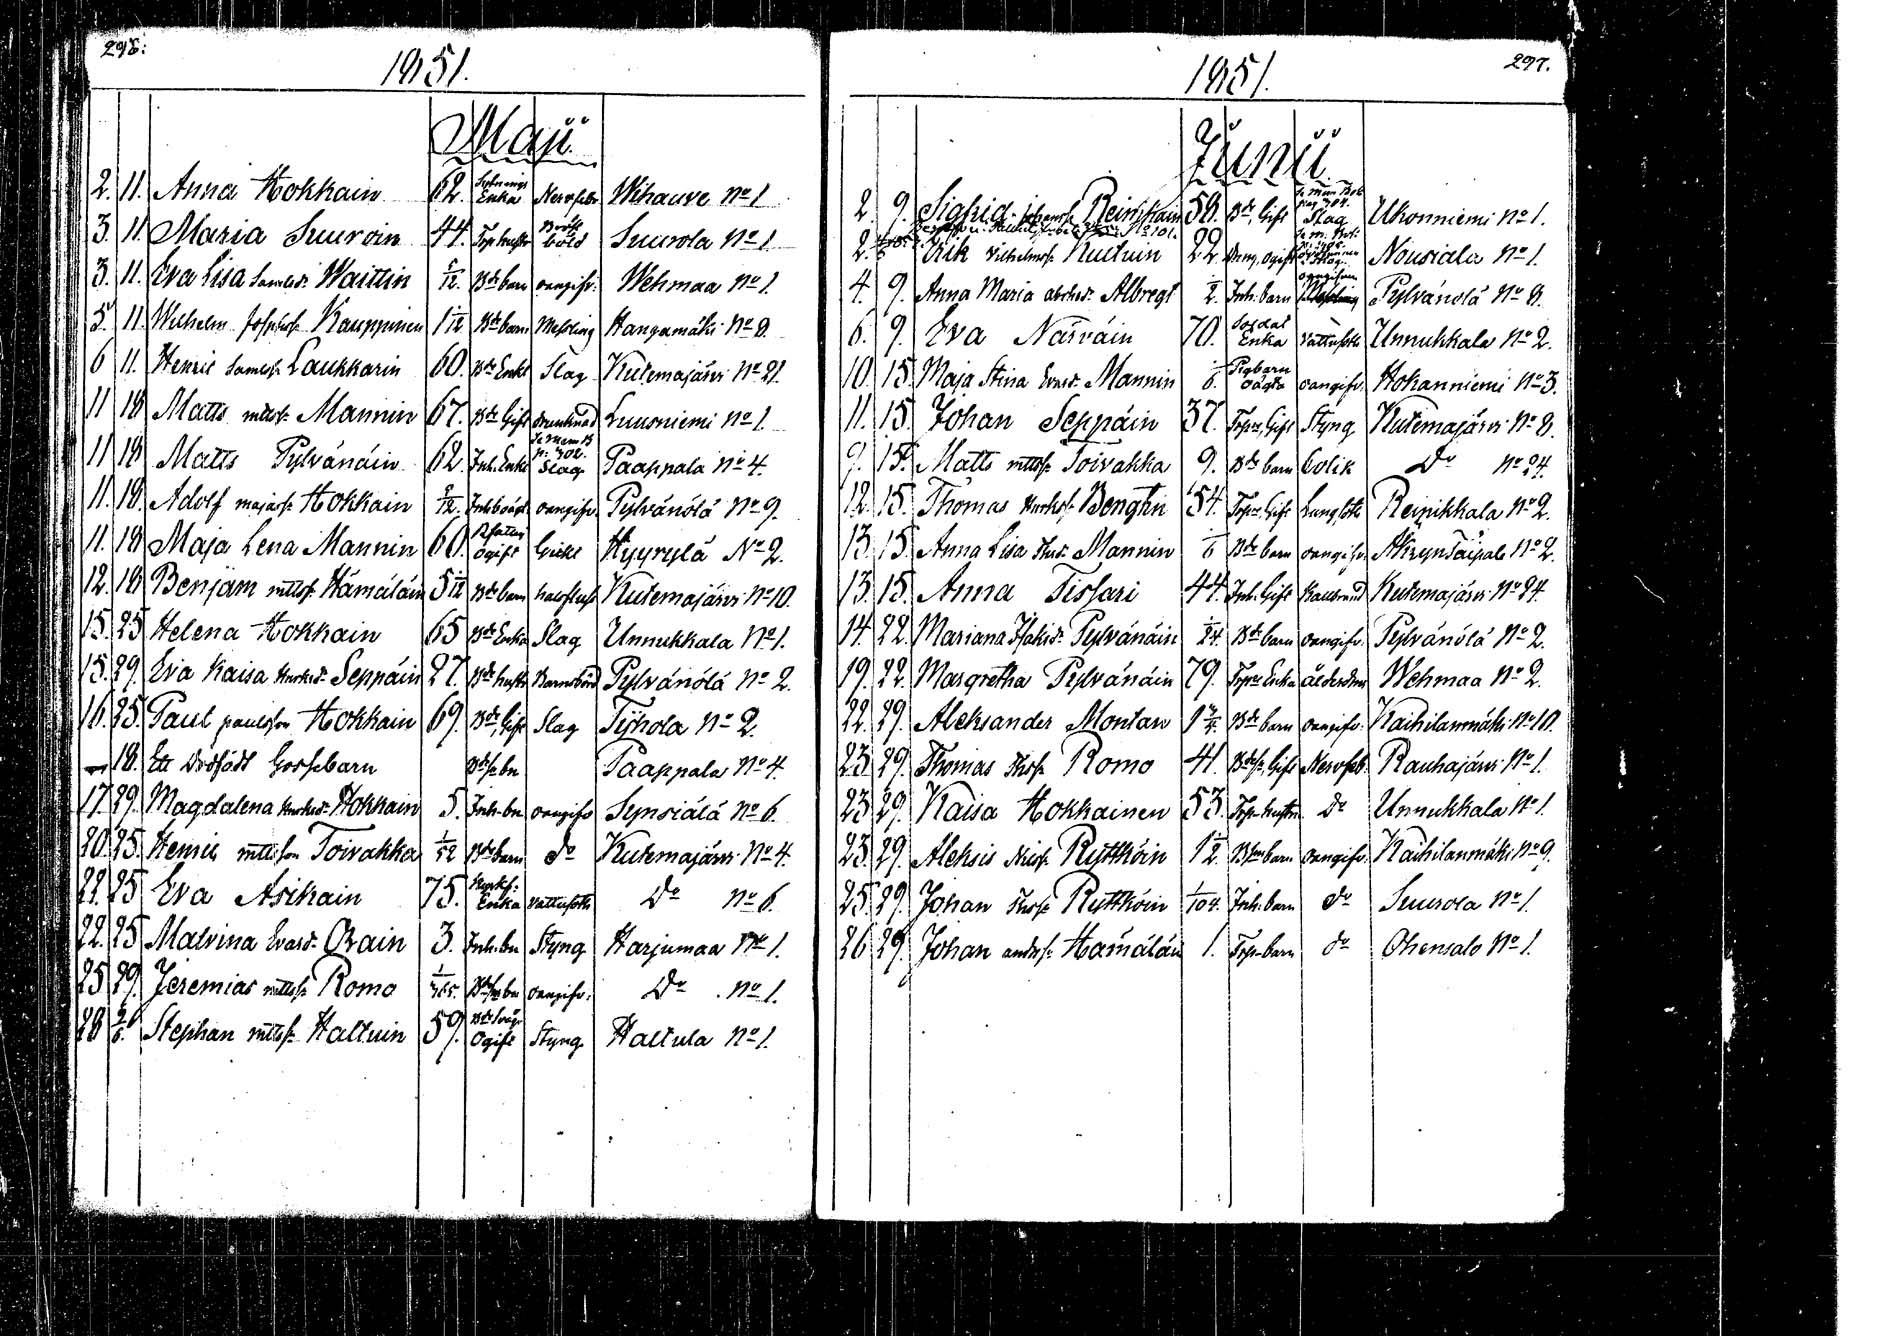 296:
1851.
Maji
2. 11. Anna Hokkain 62. Enka Nervfeber Wihauve No 1
3. 11. Maria Suuroin 44. Torp.hustr Bröst böld Suurola No 1
3. 11. Eva Lisa Samlsdr Waittin 5/12 Bde barn oangifv: Wehmaa No 1.
5. 11. Wilhelm Josphss. Kauppinen 1 1/12 Bde barn Messling Hangamäki No 8
6 11. Henric Samlss. Laukkarin 60. Bde Enkl Slag Kutemajärvi No 21.
11 18 Matts mttss. Mannin 67. Bde Gift drunknad Luusniemi No 1.
11 18 Matts Pylvänäin 62. Inh. Enkl Se Mem B p. 302. Slag Paappala No 4.
11. 18. Adolf majass. Hokkain 2/12. Inh. oangifv. Pylvänölä No 9.
11. 18 Maja Lena Mannin 60. Rfattig Ogift Gickt Hyyrylä No 2.
12. 18 Benjam mttss. Hämäläin 5/12 Bde barn halsfluss Kutemajärvi No 10.
15. 25 Helena Hokkain 65 Bde Enka Slag Unnukkala No 1.
15. 29. Eva Kaisa Seppäin 27. Bde hustr Barnsbörd Pylvänölä No 2.
16. 25. Paul paulsson Hokkain 69. Bde, Gift Slag Tÿhola No 2.
— 18. Ett Dödfödt Gossebarn Paappala No 4.
17. 29. Magdalena Hokkain 5. Inh. bn oangifv Synsiälä No 6.
20. 25. Henric mttsson Toivakka 1/52 Bde barn do Kutemajärvi No 4.
22. 25 Eva Asikain 75. Enka vattusoth Do No 6.
22. 25 Malvina Evasdr Ozain 3. Inh. bn Styng Harjumaa No 1.
25 29. Jeremias mttss. Romo 1/365. oangifv. Do No 1.
28 2/6. Stephan mttss. Haltuin 59. Ogift Styng Haltula No 1.
297.
1851.
Junii
2. 9. Sigfrid johanss. Reinikain 58. Bde, Gift Slag Ukonniemi No 1.
2. Erik Vilhelmss. Kuituin 22 Dräng, ogift Nousiala No 1.
4. 9. Anna Maria Albregt 1/2. Inh. barn oangifven Pylvänölä No 8.
6. 9. Eva Nasväin 70. Soldat Enka vattusoth Unnukkala No 2.
10. 15. Maja Stina Evasdr Mannin 1/6. Pigbarn oägta oangifv. Hokanniemi No 3.
11. 15. Johan Seppäin 37. Torpr, Gift Styng Kutemajärvi No 8.
9. 15. Matts mttss. Toivakka 9. Bde barn Colik Do No 24.
12. 15. Thomas Bengtin 54. Torpr, Gift Lungsoth Reinikkala No 2.
13. 15. Anna Lisa Mannin 1/6 Bde barn oangifv. No 2.
13. 15. Anna Tissari 44. Inh. Gift Kutemajärvi No 24.
14. 22. Mariana Pylvänäin 1/24. Bde barn oangifv. Pylvänölä No 2.
19. 22. Margretha Pylvänäin 79. Torpr Enka ålderdom Wehmaa No 2.
22. 29. Aleksander Montan Bde barn oangifv. Kaihilanmäki No 10.
23. 29. Thomas Thoss. Romo 41. Gift Nervfeb. Rauhajärvi No 1.
23 29. Kaisa Hokkainen 53. Torp. hustru Do Unnukkala No 1.
23. 29. Aleksis Ruttköin 1 1/2. barn oangifv. Kaihilanmäki No 9.
25. 29. Johan Thoss. Ruttköin 1/104. Inh. barn do Suurola No 1.
26 29. Johan andrss. Hämäläin 1. Torp. barn do Ohensalo No 1.